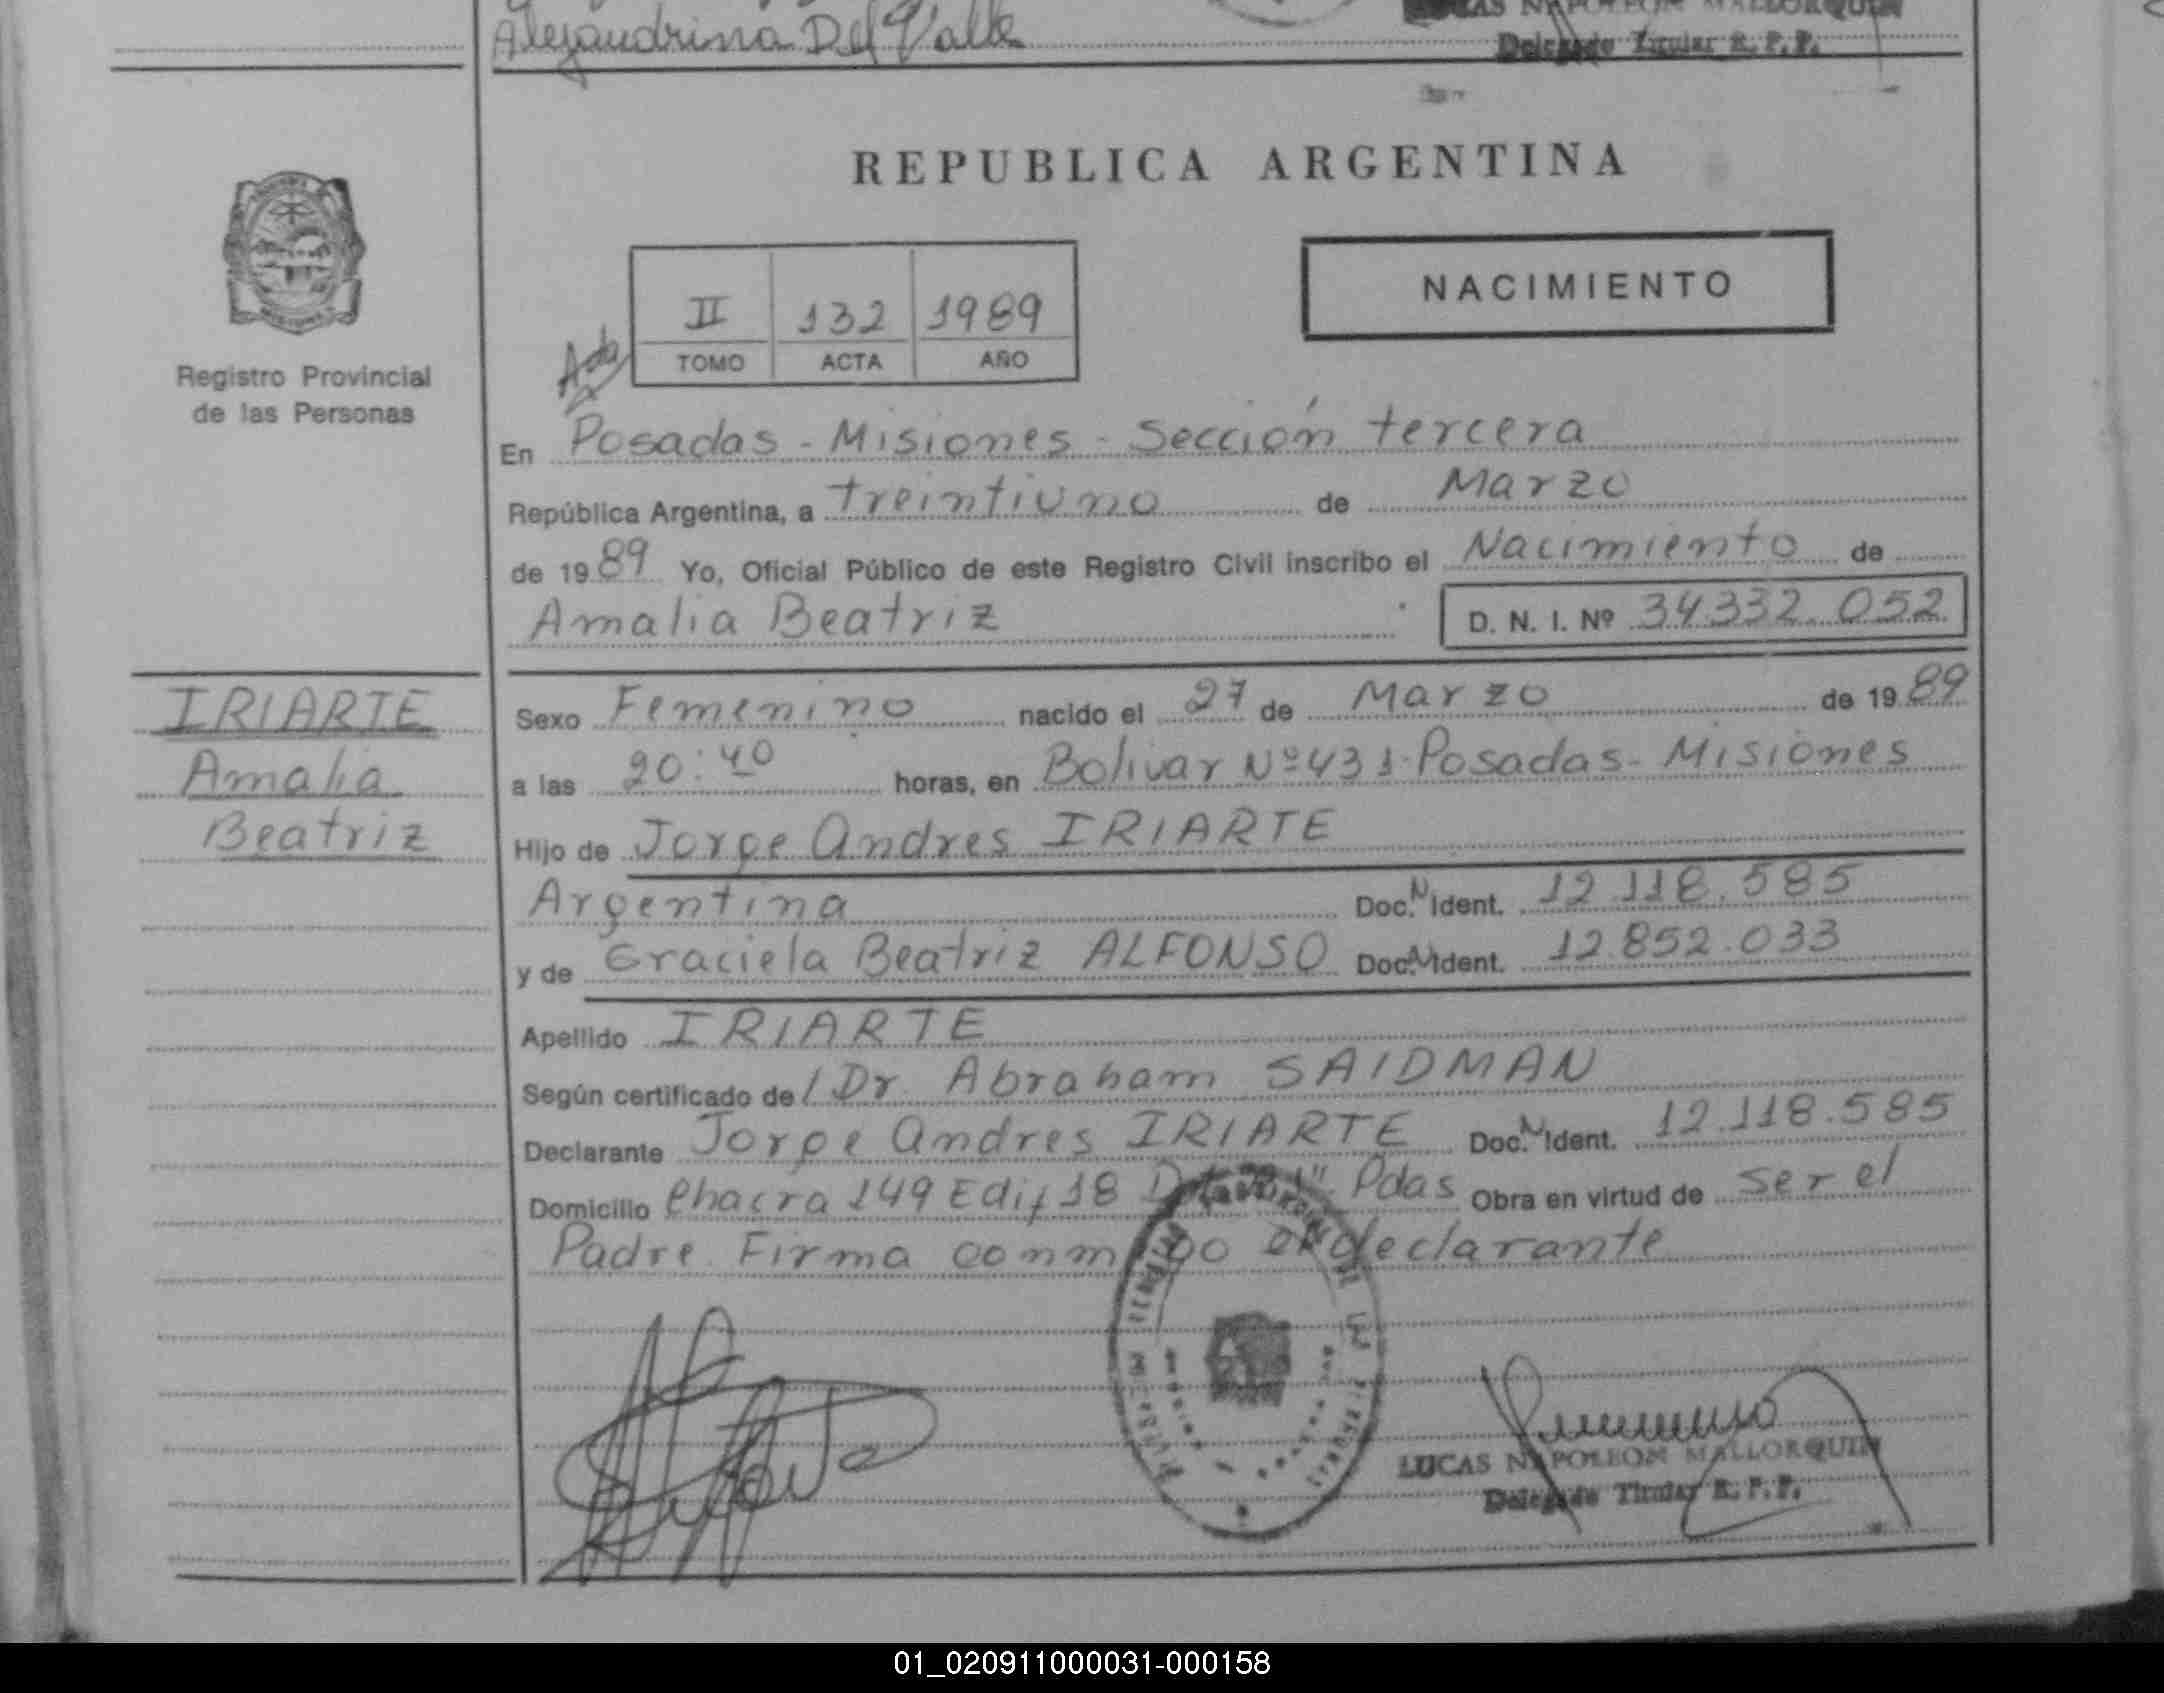 Alejandrina Del Valle
LUCAS NAPOLEON MALLORQUIN
Delegado Titular R. P. P.
REPUBLICA ARGENTINA
II 132 1989
TOMO ACTA AÑO
NACIMIENTO
Registro Provincial
de las Personas
En Posadas - Misiones - Sección tercera
República Argentina, a treintiuno de Marzo
de 1989 Yo, Oficial Público de este Registro Civil inscribo el Nacimiento de
Amalia Beatriz D. N. I. Nº 34.332.052
IRIARTE
Amalia
Beatriz
Sexo Femenino nacido el 27 de Marzo de 1989
a las 20:40 horas, en Bolivar Nº 431 - Posadas - Misiones
Hijo de Jorge Andres IRIARTE
Argentina Doc. N Ident. 12.118.585
y de Graciela Beatriz ALFONSO Doc. N Ident. 12.852.033
Apellido IRIARTE
Según certificado de / Dr. Abraham SAIDMAN
Declarante Jorge Andres IRIARTE Doc. N Ident. 12.118.585
Domicilio Chacra 149 Edif 18 Pdas Obra en virtud de ser el
Padre. Firma conmigo el declarante
LUCAS NAPOLEON MALLORQUIN
Delegado Titular R. P. P.
01_020911000031-000158